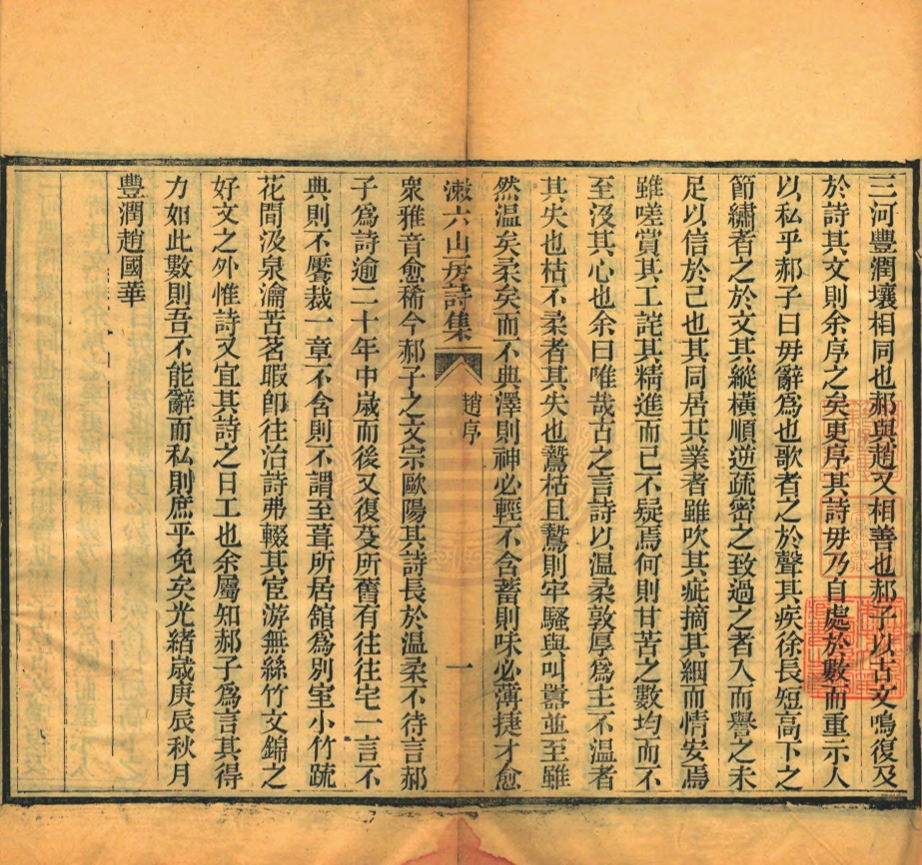 三河豐潤壤相同也郝與趙又相善也郝子以古文鳴復及
於詩其文則余序之矣更序其詩毋乃自處於數而重示人
以私乎郝子曰毋辭爲也歌者之於聲其疾徐長短高下之
節繡者之於文其縱橫順逆疏密之致過之者入而譽之未
足以信於己也其同居其業者雖吹其疵摘其細而情安焉
雖嗟賞其工詫其精進而己不疑焉何則甘苦之數均而不
至沒其心也余曰唯哉古之言詩以溫柔敦厚爲主不溫者
其失也枯不柔者其失也鷙枯且鷙則牢騷與叫囂並至雖
然溫矣柔矣而不典澤則神必輕不含蓄則味必薄捷才愈
潄六山房詩集 趙序 一
衆雅音愈稀今郝子之文宗歐陽其詩長於溫柔不待言郝
子爲詩逾二十年中歲而後又復芟所舊有往往宅一言不
典則不饜裁一章不含則不謂至葺所居舘爲別室小竹疏
花間汲泉瀹苦茗暇卽往治詩弗輟其宦游無絲竹文錦之
好文之外惟詩又宜其詩之日工也余屬知郝子爲言其得
力如此數則吾不能辭而私則庶乎免矣光緒歲庚辰秋月
豐潤趙國華